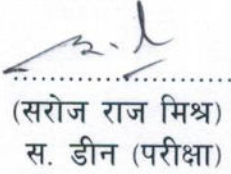 (सरोज राज मिश्र)
स. डीन (परीक्षा)